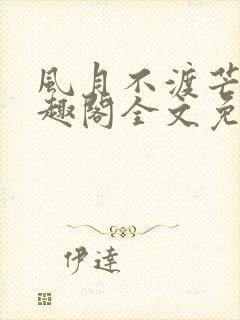 風月不渡芒
趣閣全文免
伊達